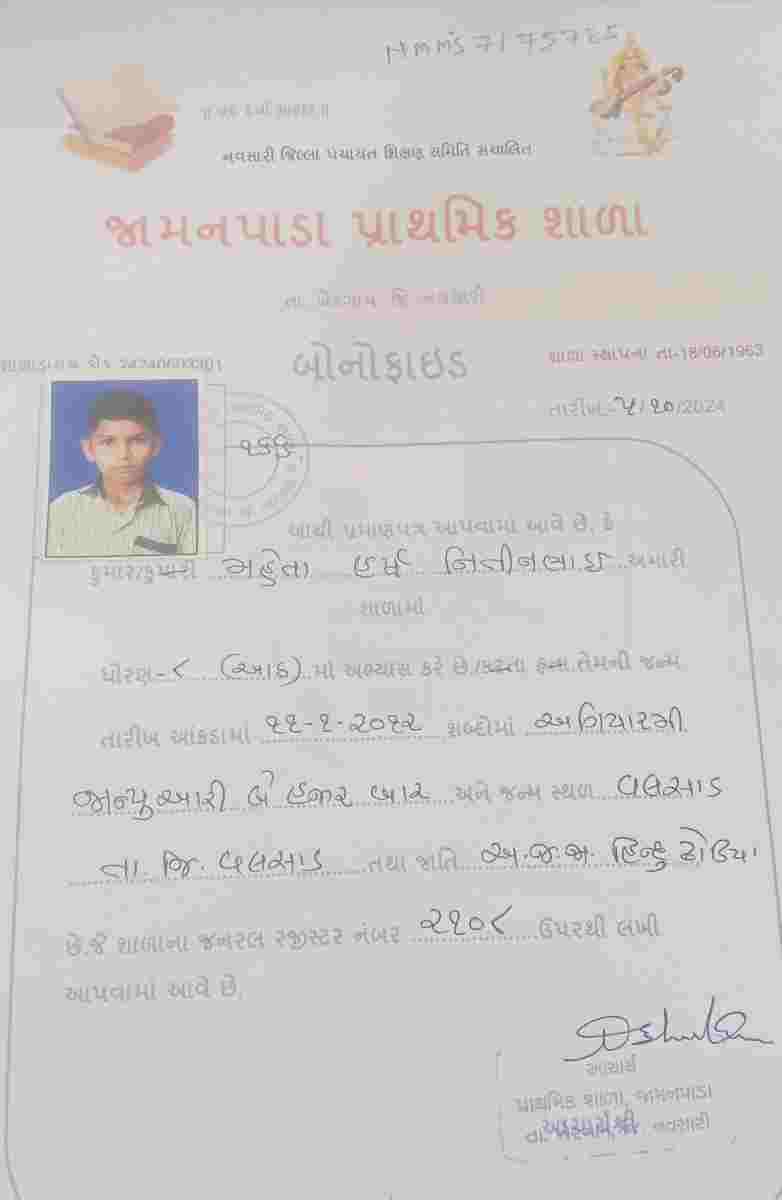 NMMS 7175785
નવસારી જિલ્લા પંચાયત શિક્ષણ સમિતિ સંચાલિત
જામનપાડા પ્રાથમિક શાળા
તા. ખેરગામ જિ. નવસારી
બોનોફાઇડ
શાળા સ્થાપના તા-18/06/1963
તારીખ:-૫/૧૦/2024
આથી પ્રમાણપત્ર આપવામાં આવે છે, કે
કુમાર/કુમારી મહેતા હર્ષ નિતીનભાઇ અમારી
શાળામાં
ધોરણ-૮ (આઠ) માં અભ્યાસ કરે છે./કરતા હતા.તેમની જન્મ
તારીખ આંકડામાં ૧૧-૧-૨૦૧૨ શબ્દોમાં અગિયારમી
જાન્યુઆરી બે હજાર બાર અને જન્મ સ્થળ વલસાડ
તા. જિ. વલસાડ તથા જાતિ અ.જ.જા. હિન્દુ ઢોડિયા
છે.જે શાળાના જનરલ રજીસ્ટર નંબર ૨૧૦૮ ઉપરથી લખી
આપવામાં આવે છે.
આચાર્ય
પ્રાથમિક શાળા, જામનપાડા
તા. નવસારી